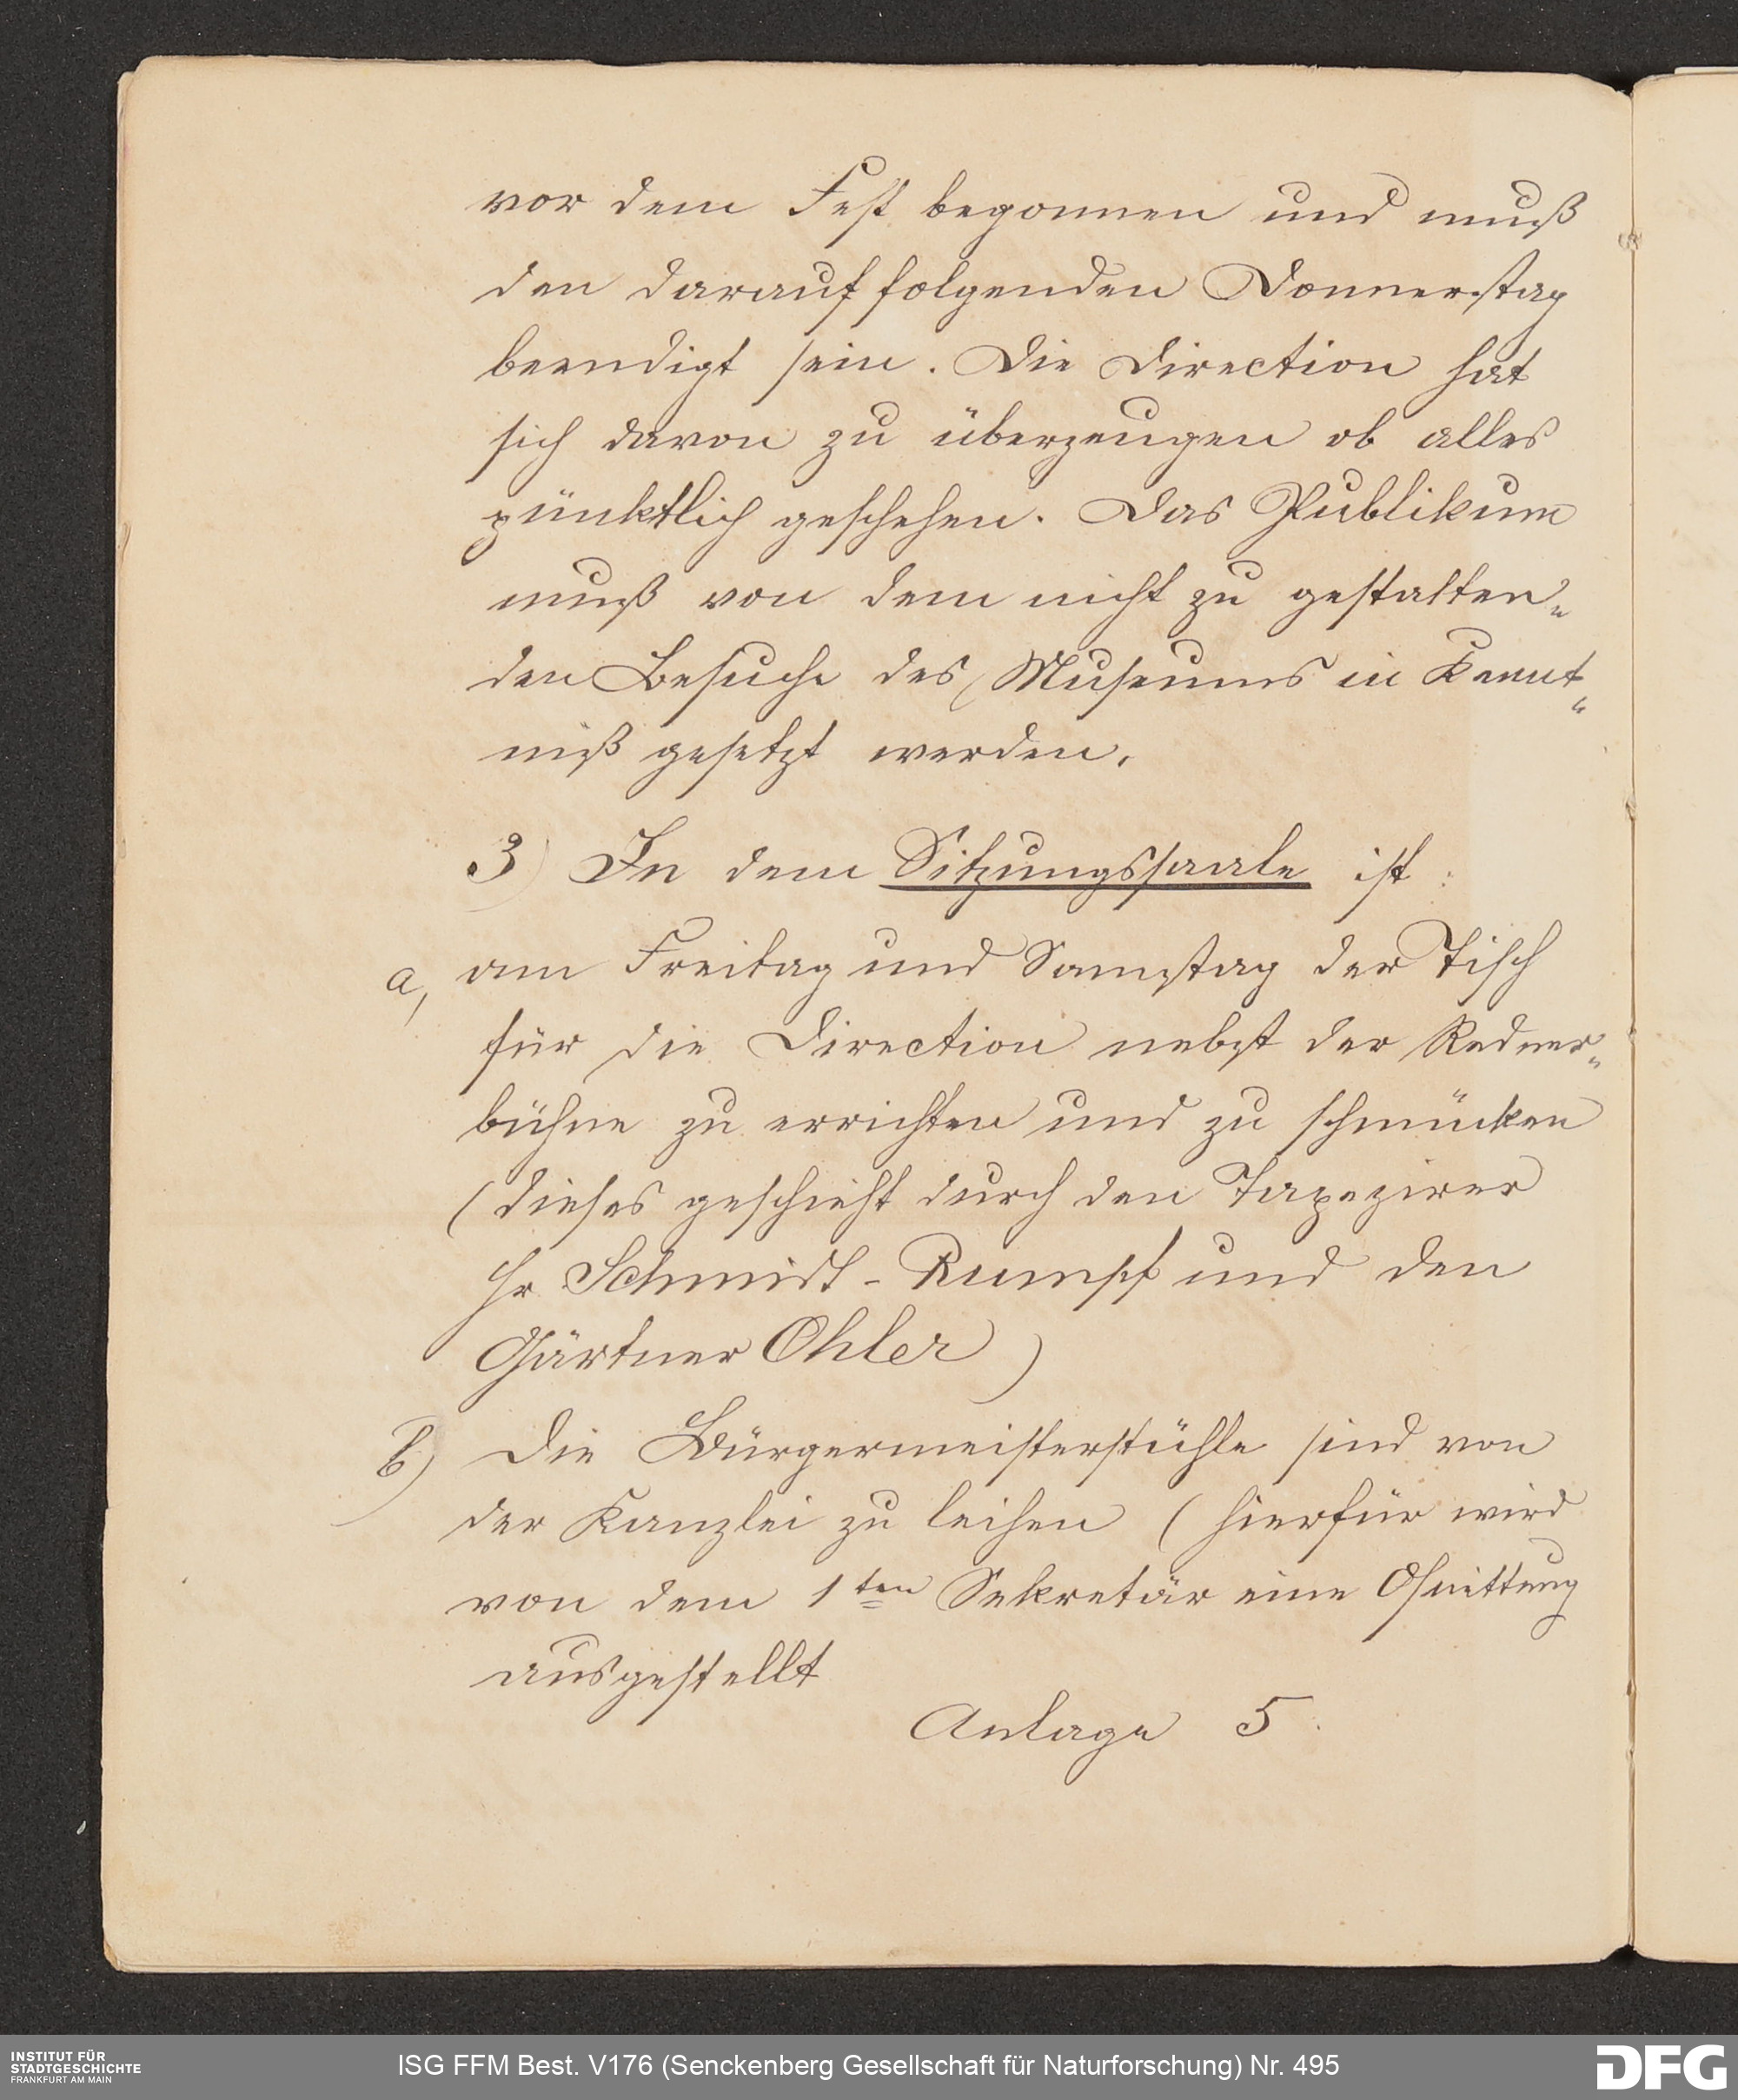 vor dem Fest begonnen und muß
den darauf folgenden Donnerstag
beendigt sein. Die Direction hat
sich davon zu überzeugen ob alles
pünktlich geschehen. Das Publikum
muß von dem nicht zu gestatten„
den Besuche des Museums in Kennt„
niß gesetzt werden.
3) In dem Sitzungssaale ist:
a, am Freitag und Samstag der Tisch
für die Direction nebst der Redner„
bühne zu errichten und zu schmücken
(dieses geschieht durch den Tapezirer
Hr Schmidt-Rumpf und den
Gärtner Ohler)
b) Die Bürgermeisterstühle sind von
der Kanzlei zu leihen (hierfür wird
von dem 1ten Sekretär eine Quittung
ausgestellt
Anlage 5.
INSTITUT FÜR
STADTGESCHICHTE
FRANKFURT AM MAIN
ISG FFM Best. V176 (Senckenberg Gesellschaft für Naturforschung) Nr. 495
DFG